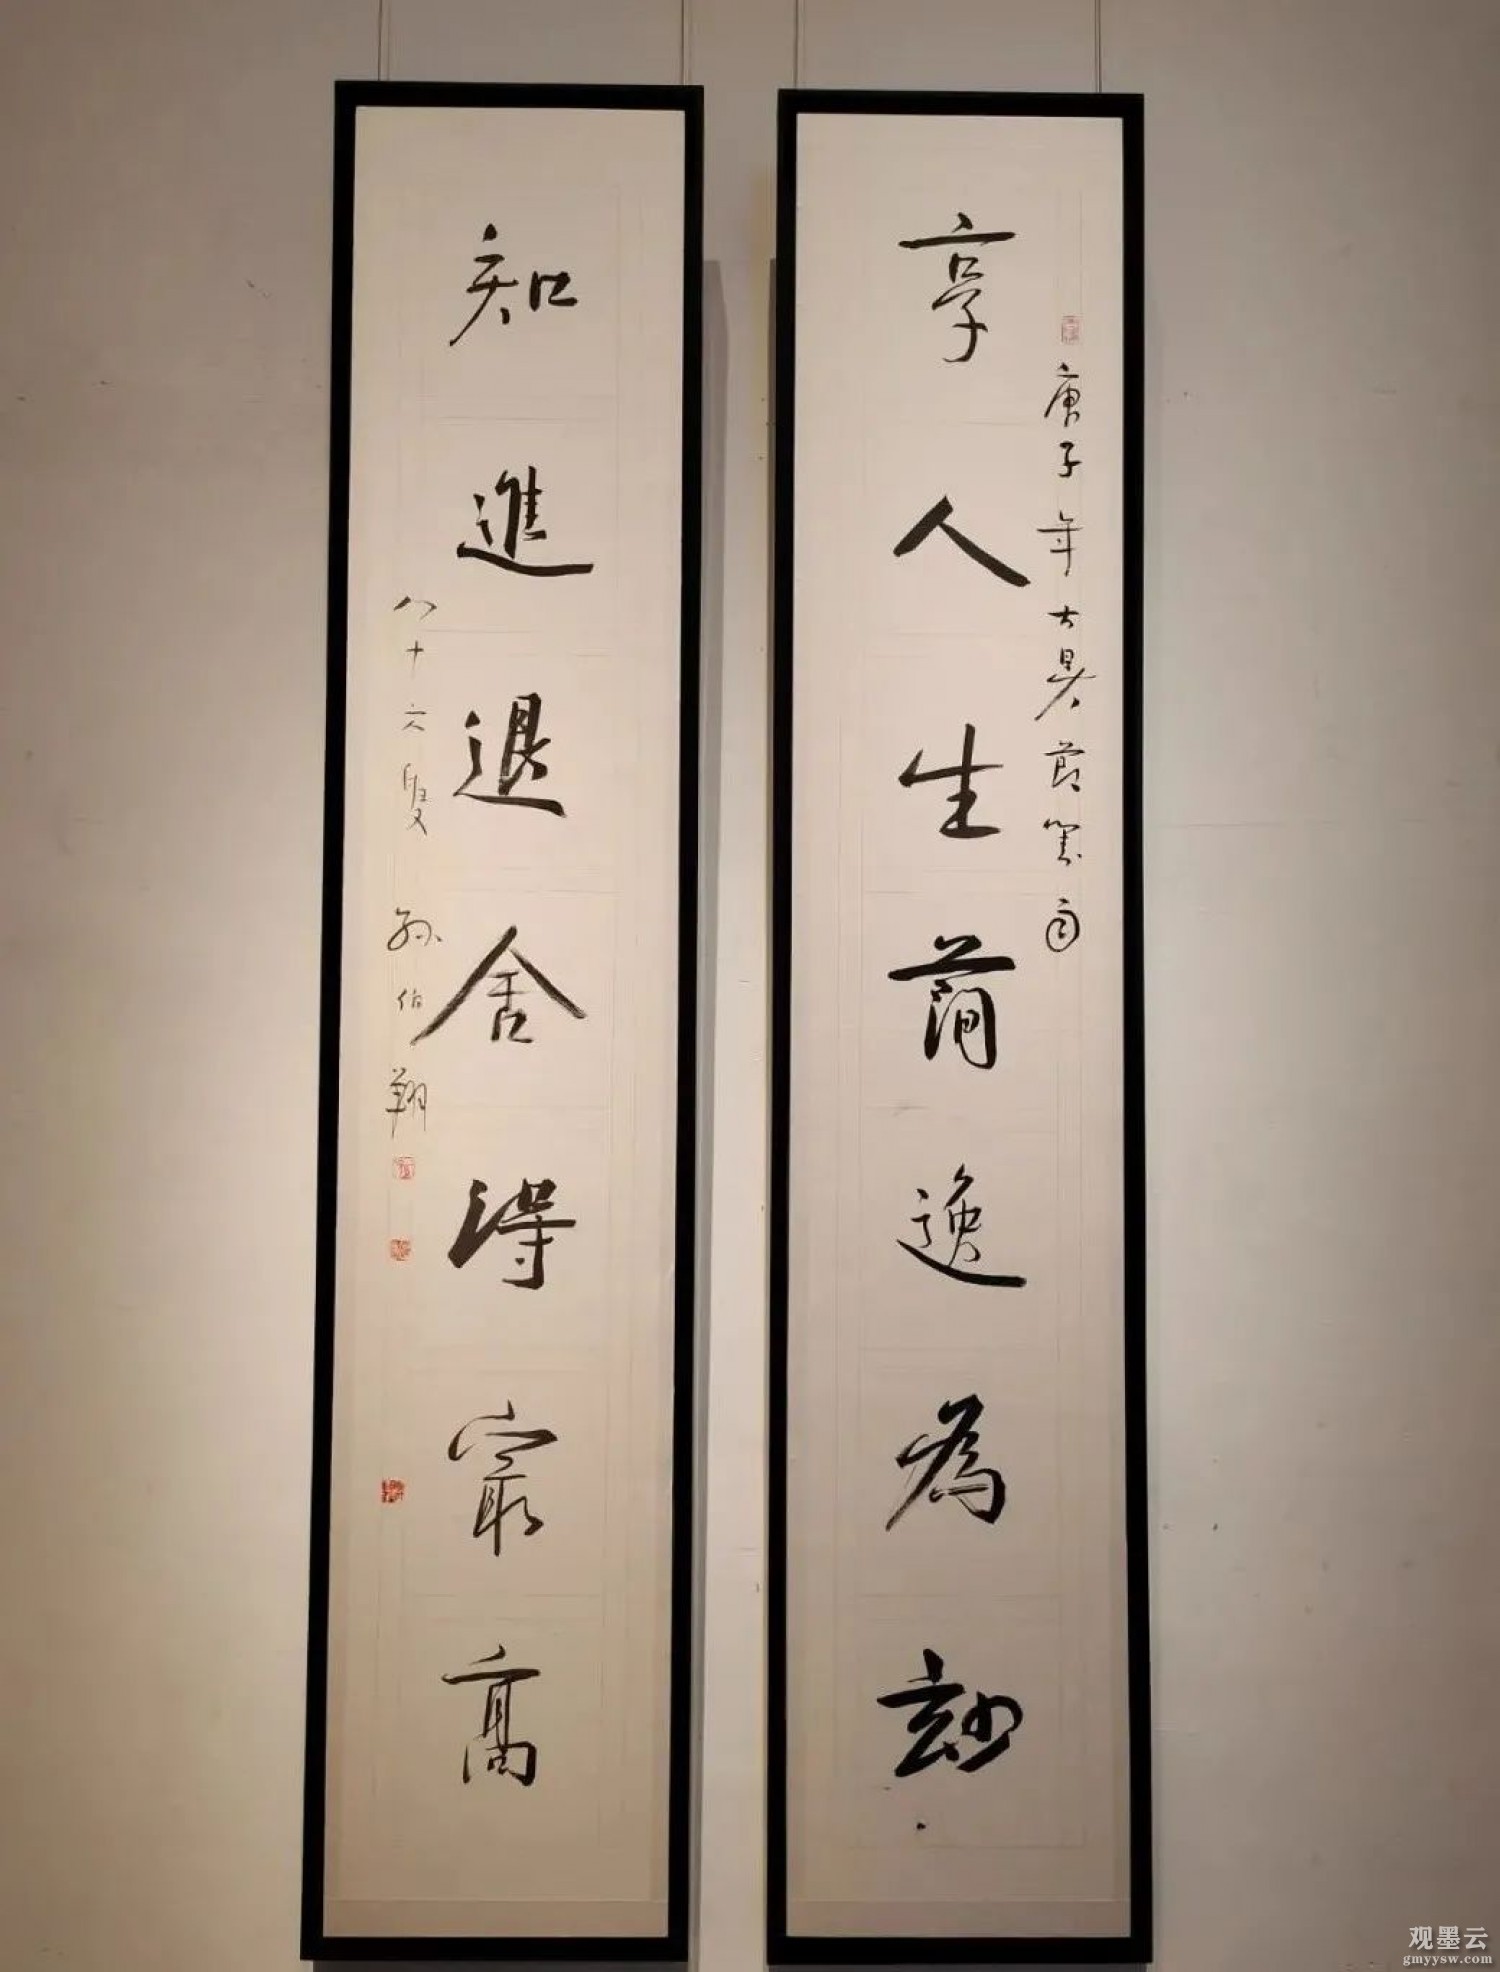 享人生簡逸為玅
庚子年大
知進退舍得冣高
八十六叟孫伯翔
观墨云
gmyysw.com